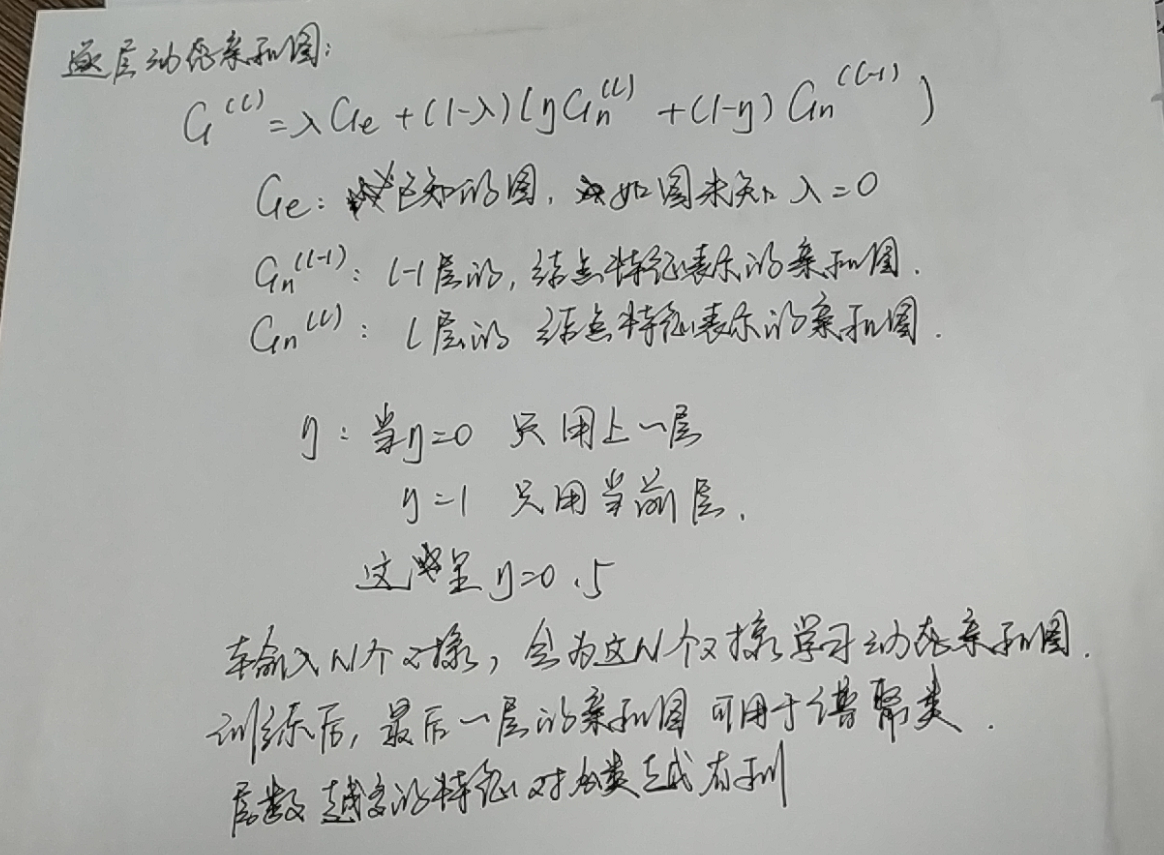 逐层动态亲和图:
G^(l) = λGe + (1-λ)(ηGn^(l) + (1-η)Gn^(l-1))
Ge: 已知的图, 如图未知 λ=0
Gn^(l-1): l-1层的, 结点特征表示的亲和图.
Gn^(l): l层的 结点特征表示的亲和图.
η: 当η=0 只用上一层
η=1 只用当前层.
这里η=0.5
输入N个对象, 会为这N个对象学习动态亲和图.
训练后, 最后一层的亲和图 可用于谱聚类.
层数越多的特征对分类越有利